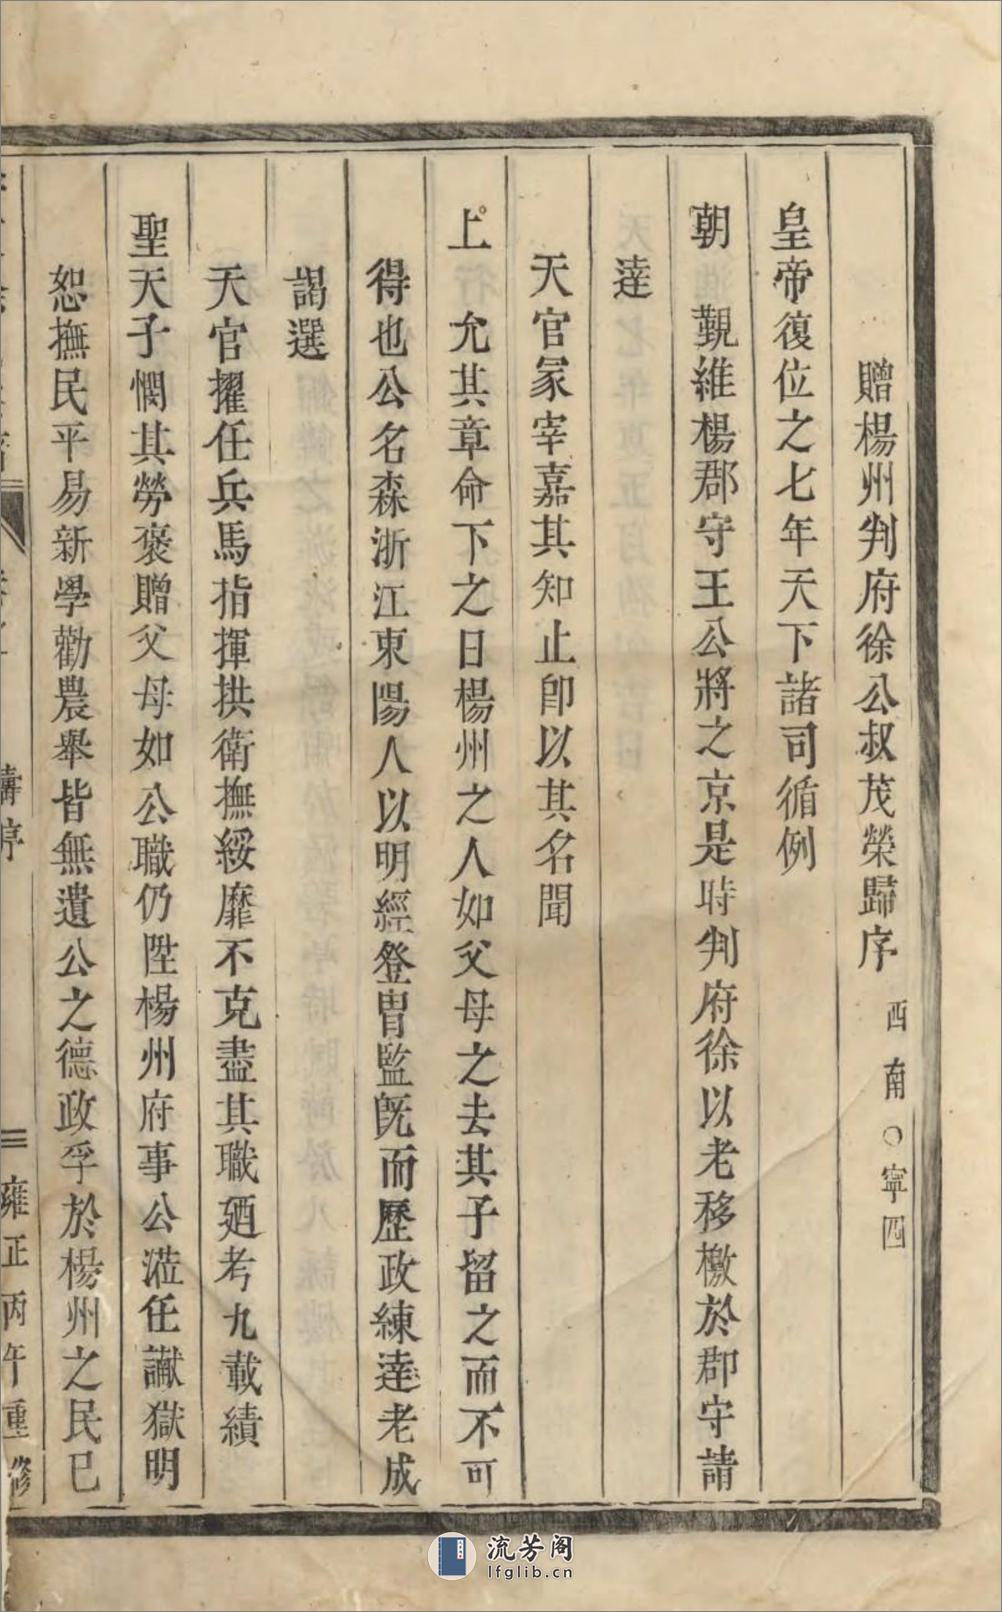 贈楊州判府徐公叔茂榮歸序 西南○寧四
皇帝復位之七年天下諸司循例
朝 覲維楊郡守王公將之京是時判府徐以老移檄於郡守請
達
天官冢宰嘉其知止卽以其名聞
上 允其章命下之日楊州之人如父母之去其子留之而不可
得也公名森浙江東陽人以明經登胄監旣而歷政練達老成
謁選
天官擢任兵馬指揮拱衛撫綏靡不克盡其職廼考九載績
聖天子憫其勞褒贈父母如公職仍陞楊州府事公蒞任讞獄明
恕撫民平易新學勸農舉皆無遺公之德政孚於楊州之民已
雍正丙午重修
流芳阁
lfglib.cn